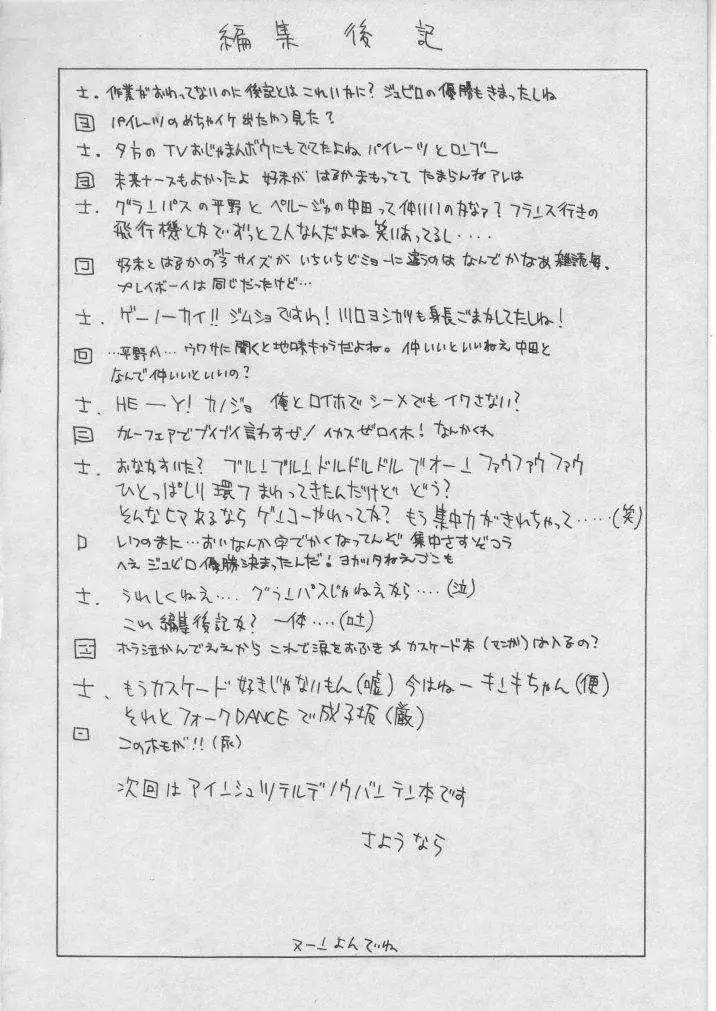 編集後記
士. 作業がおわってないのに後記とはこれいかに？ジュビロの優勝もきまったしね
ヨ パイレーツのめちゃイケ出たやつ見た？
士. 夕方のTVおじゃまんボウにもでてたよね パイレーツとローブー
ヨ 未来ナースもよかったよ 好未が はるかまもってて たまらんねアレは
士. グランパスの平野とペルージャの中田って仲いいのかなァ？フランス行きの
飛行機とかでずっと2人なんだよね笑いあってるし・・・・
コ 好未とはるかの サイズが いちいちビミョーに違うのは なんでかなあ雑誌毎.
プレイボーイは同じだったけど…
士. ゲーノーカイ!! ジムショですわ！川口ヨシカツも身長ごまかしてたしね！
ロ …平野か… ウワサに聞くと地味キャラだよね。仲いいといいねえ中田と
なんで仲いいといいの？
士. HE―Y! カノジョ 俺とロイホで シーメでもイワさない？
三 カレーフェアでブイブイ言わすぜ！イカスぜロイホ！なんかくれ
士. おなかすいた？ ブルンブルンドルドルドルでオーン ファウファウファウ
ひとっぱしり 環7まわってきたんだけど どう？
そんなヒマあるなら ゲンコーやれってか？ もう集中力がきれちゃって‥‥‥(笑)
ロ いつのまに…おいなんか字でかくなってんぞ 集中さすぞコラ
へえ ジュビロ優勝決まったんだ！ヨカッタねえゴンも
士. うれしくねえ‥‥ グランパスじゃねえなら‥‥(泣)
これ 編集後記か？ 一体‥‥(吐)
ホラ泣かんでええから これで涙をおふき 〆 カスケード本 (マンガ) は入るの？
士. もうカスケード 好きじゃないもん(嘘) 今はねーキンキちゃん(便)
それとフォークDANCEで成子坂(厳)
ロ このホモが!!(尿)
次回はアインシュツテルデノウバンテン本です
さようなら
ヌーンよんでね